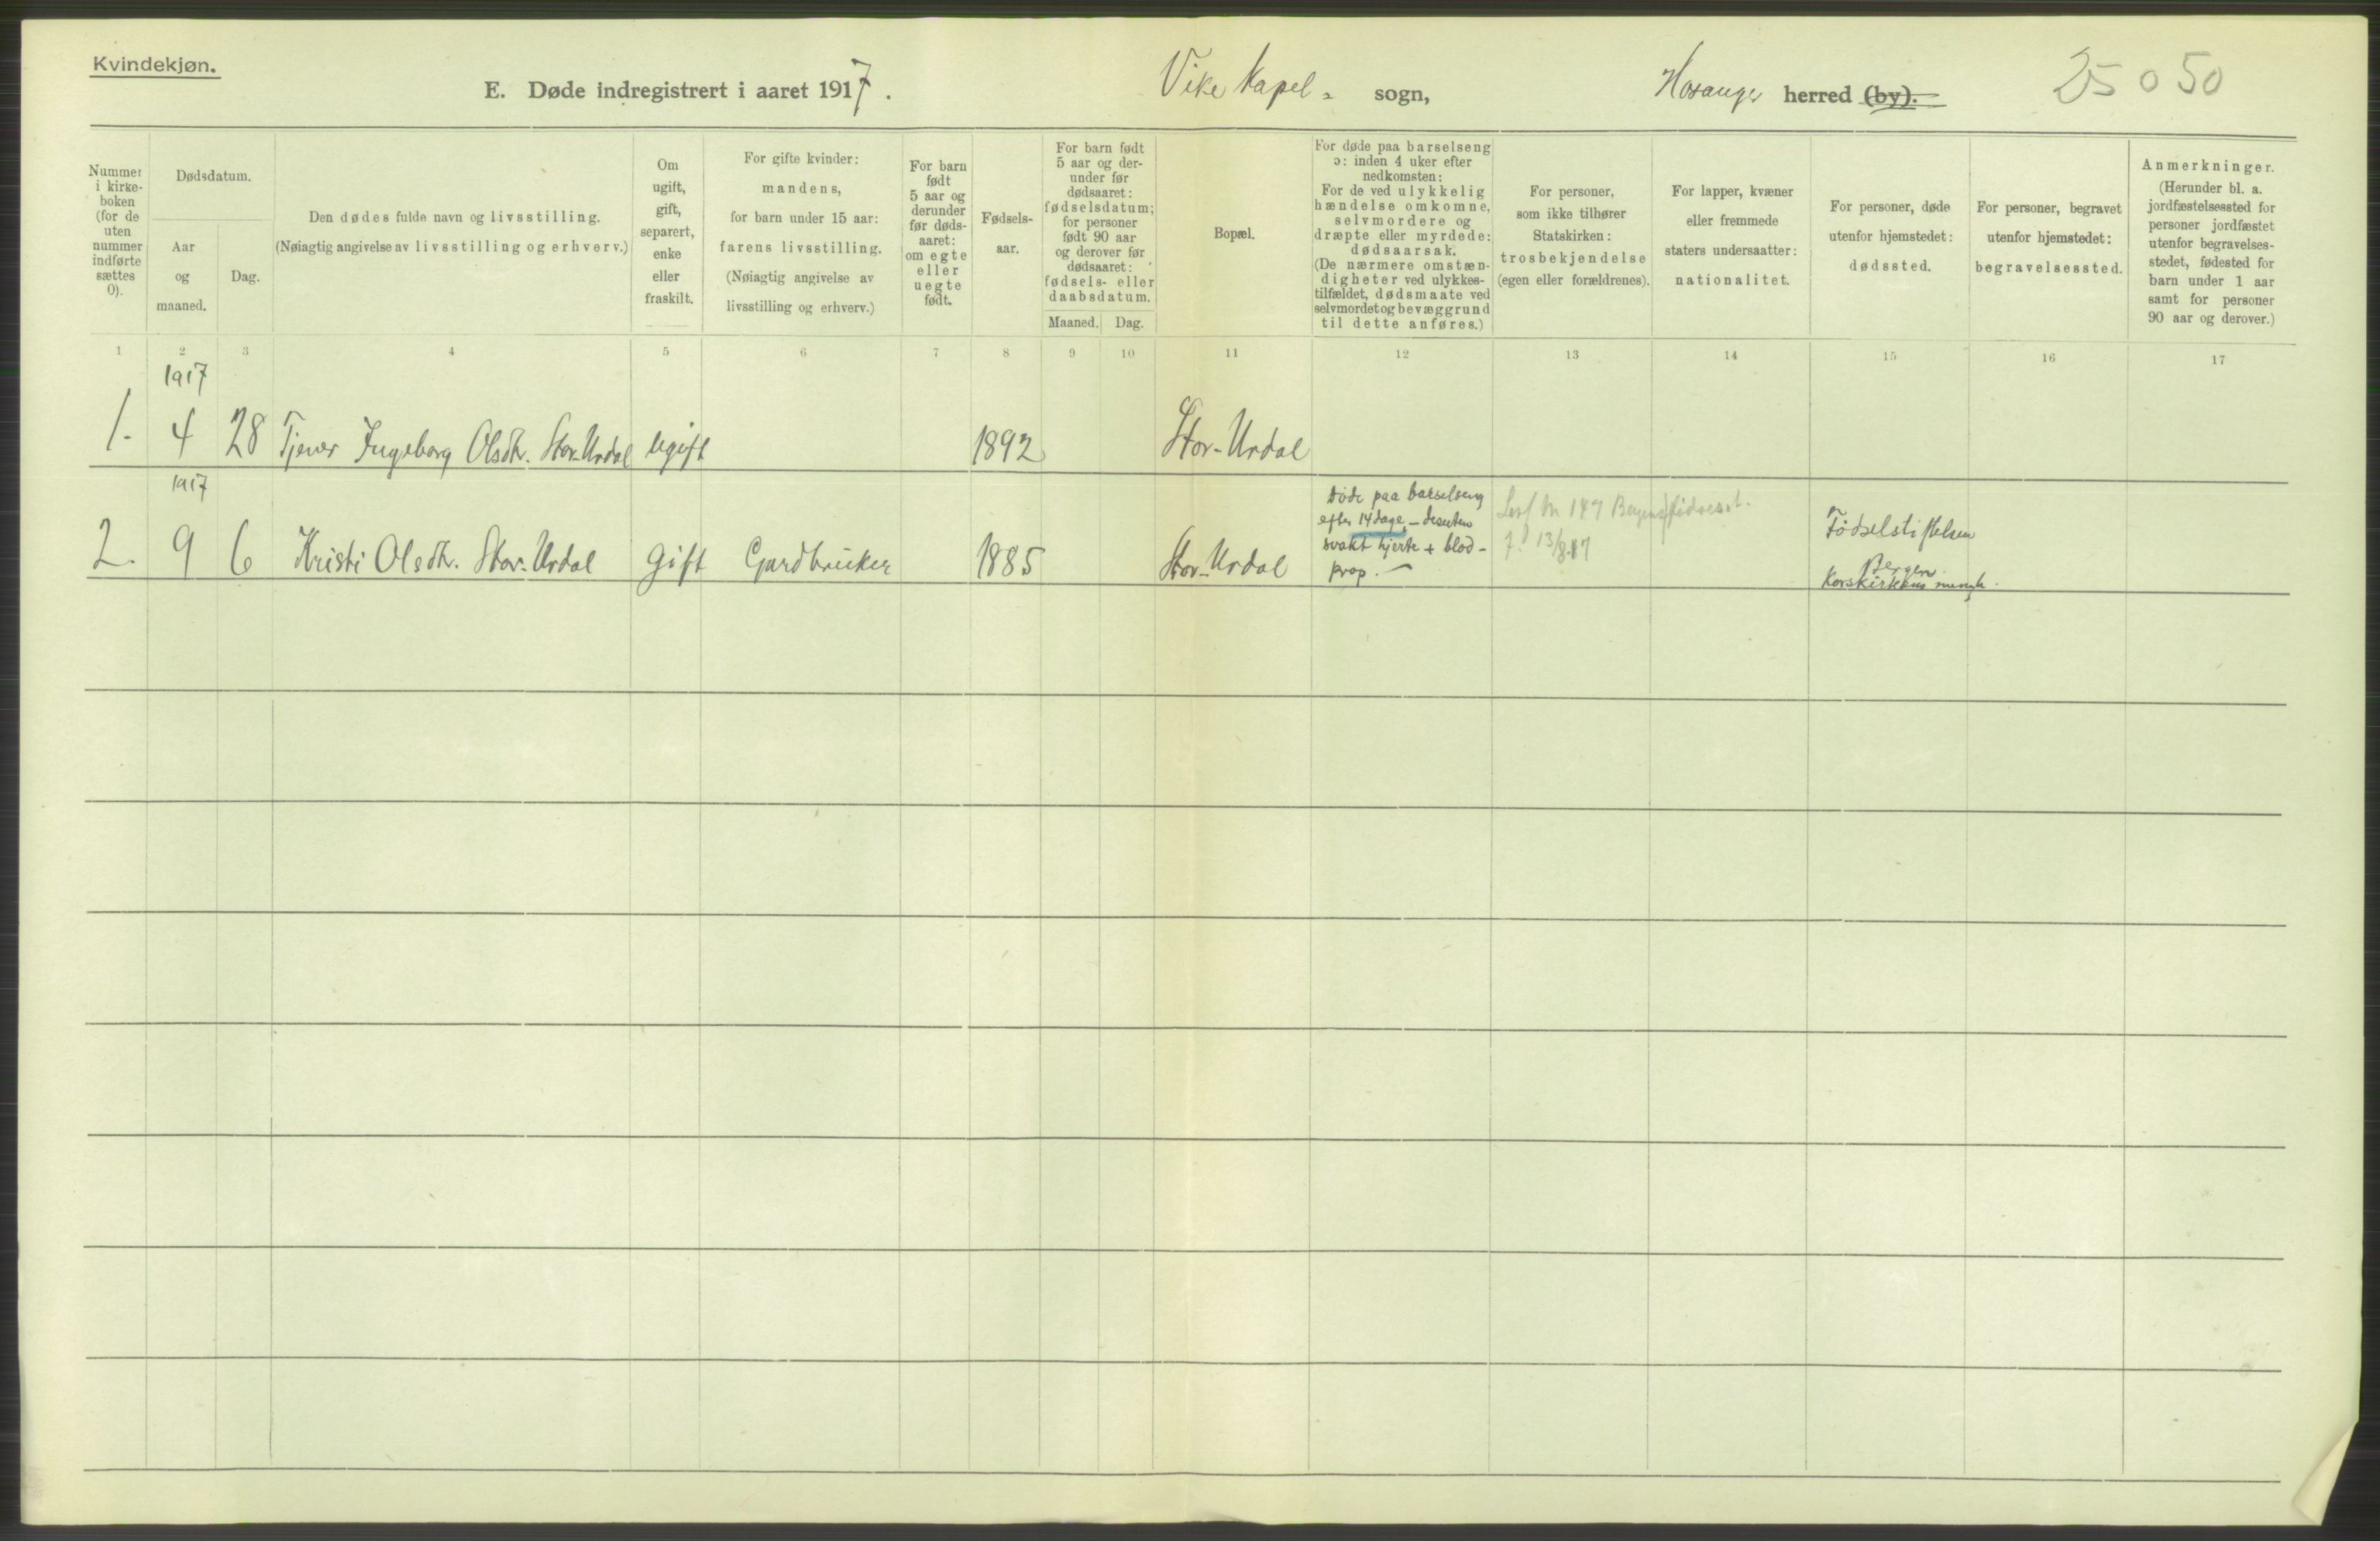 Kvindekjøn.
E. Døde indregistrert i aaret 1917. Vike Kapel- sogn, Hosanger herred (by). 25 0 50
Nummer i kirke-boken (for de uten nummer indførte sættes 0).
Dødsdatum.
Aar og maaned.
Dag.
Den dødes fulde navn og livsstilling.
(Nøiagtig angivelse av livsstilling og erhverv.)
Om ugift, gift, separert, enke eller fraskilt.
For gifte kvinder: mandens, for barn under 15 aar: farens livsstilling. (Nøiagtig angivelse av livsstilling og erhverv.)
For barn født 5 aar og derunder før døds-aaret: om egte eller uegte født.
Fødsels-aar.
For barn født 5 aar og der-under før dødsaaret: fødselsdatum; for personer født 90 aar og derover før dødsaaret: fødsels- eller daabsdatum.
Maaned. Dag.
Bopæl.
For døde paa barselseng ɔ: inden 4 uker efter nedkomsten: For de ved ulykkelig hændelse omkomne, selvmordere og dræpte eller myrdede: dødsaarsak. (De nærmere omstæn-digheter ved ulykkes-tilfældet, dødsmaate ved selvmordet og bevæggrund til dette anføres.)
For personer, som ikke tilhører Statskirken: trosbekjendelse (egen eller forældrenes).
For lapper, kvæner eller fremmede staters undersaatter: nationalitet.
For personer, døde utenfor hjemstedet: dødssted.
For personer, begravet utenfor hjemstedet: begravelsessted.
Anmerkninger. (Herunder bl. a. jordfæstelsessted for personer jordfæstet utenfor begravelses-stedet, fødested for barn under 1 aar samt for personer 90 aar og derover.)
1 2 3 4 5 6 7 8 9 10 11 12 13 14 15 16 17
1917
1. 4 28 Tjener Ingeborg Olsdtr. Stor-Urdal ugift 1892 Stor-Urdal
1917
2. 9 6 Kristi Olsdtr. Stor-Urdal gift Gardbruker 1885 Stor-Urdal
Døde paa barselseng
efter 14 dage –
svakt hjerte + blod-
prop. –
147
13/8.17
Fødselstiftelsen
Bergen
Korskirkens menigh.